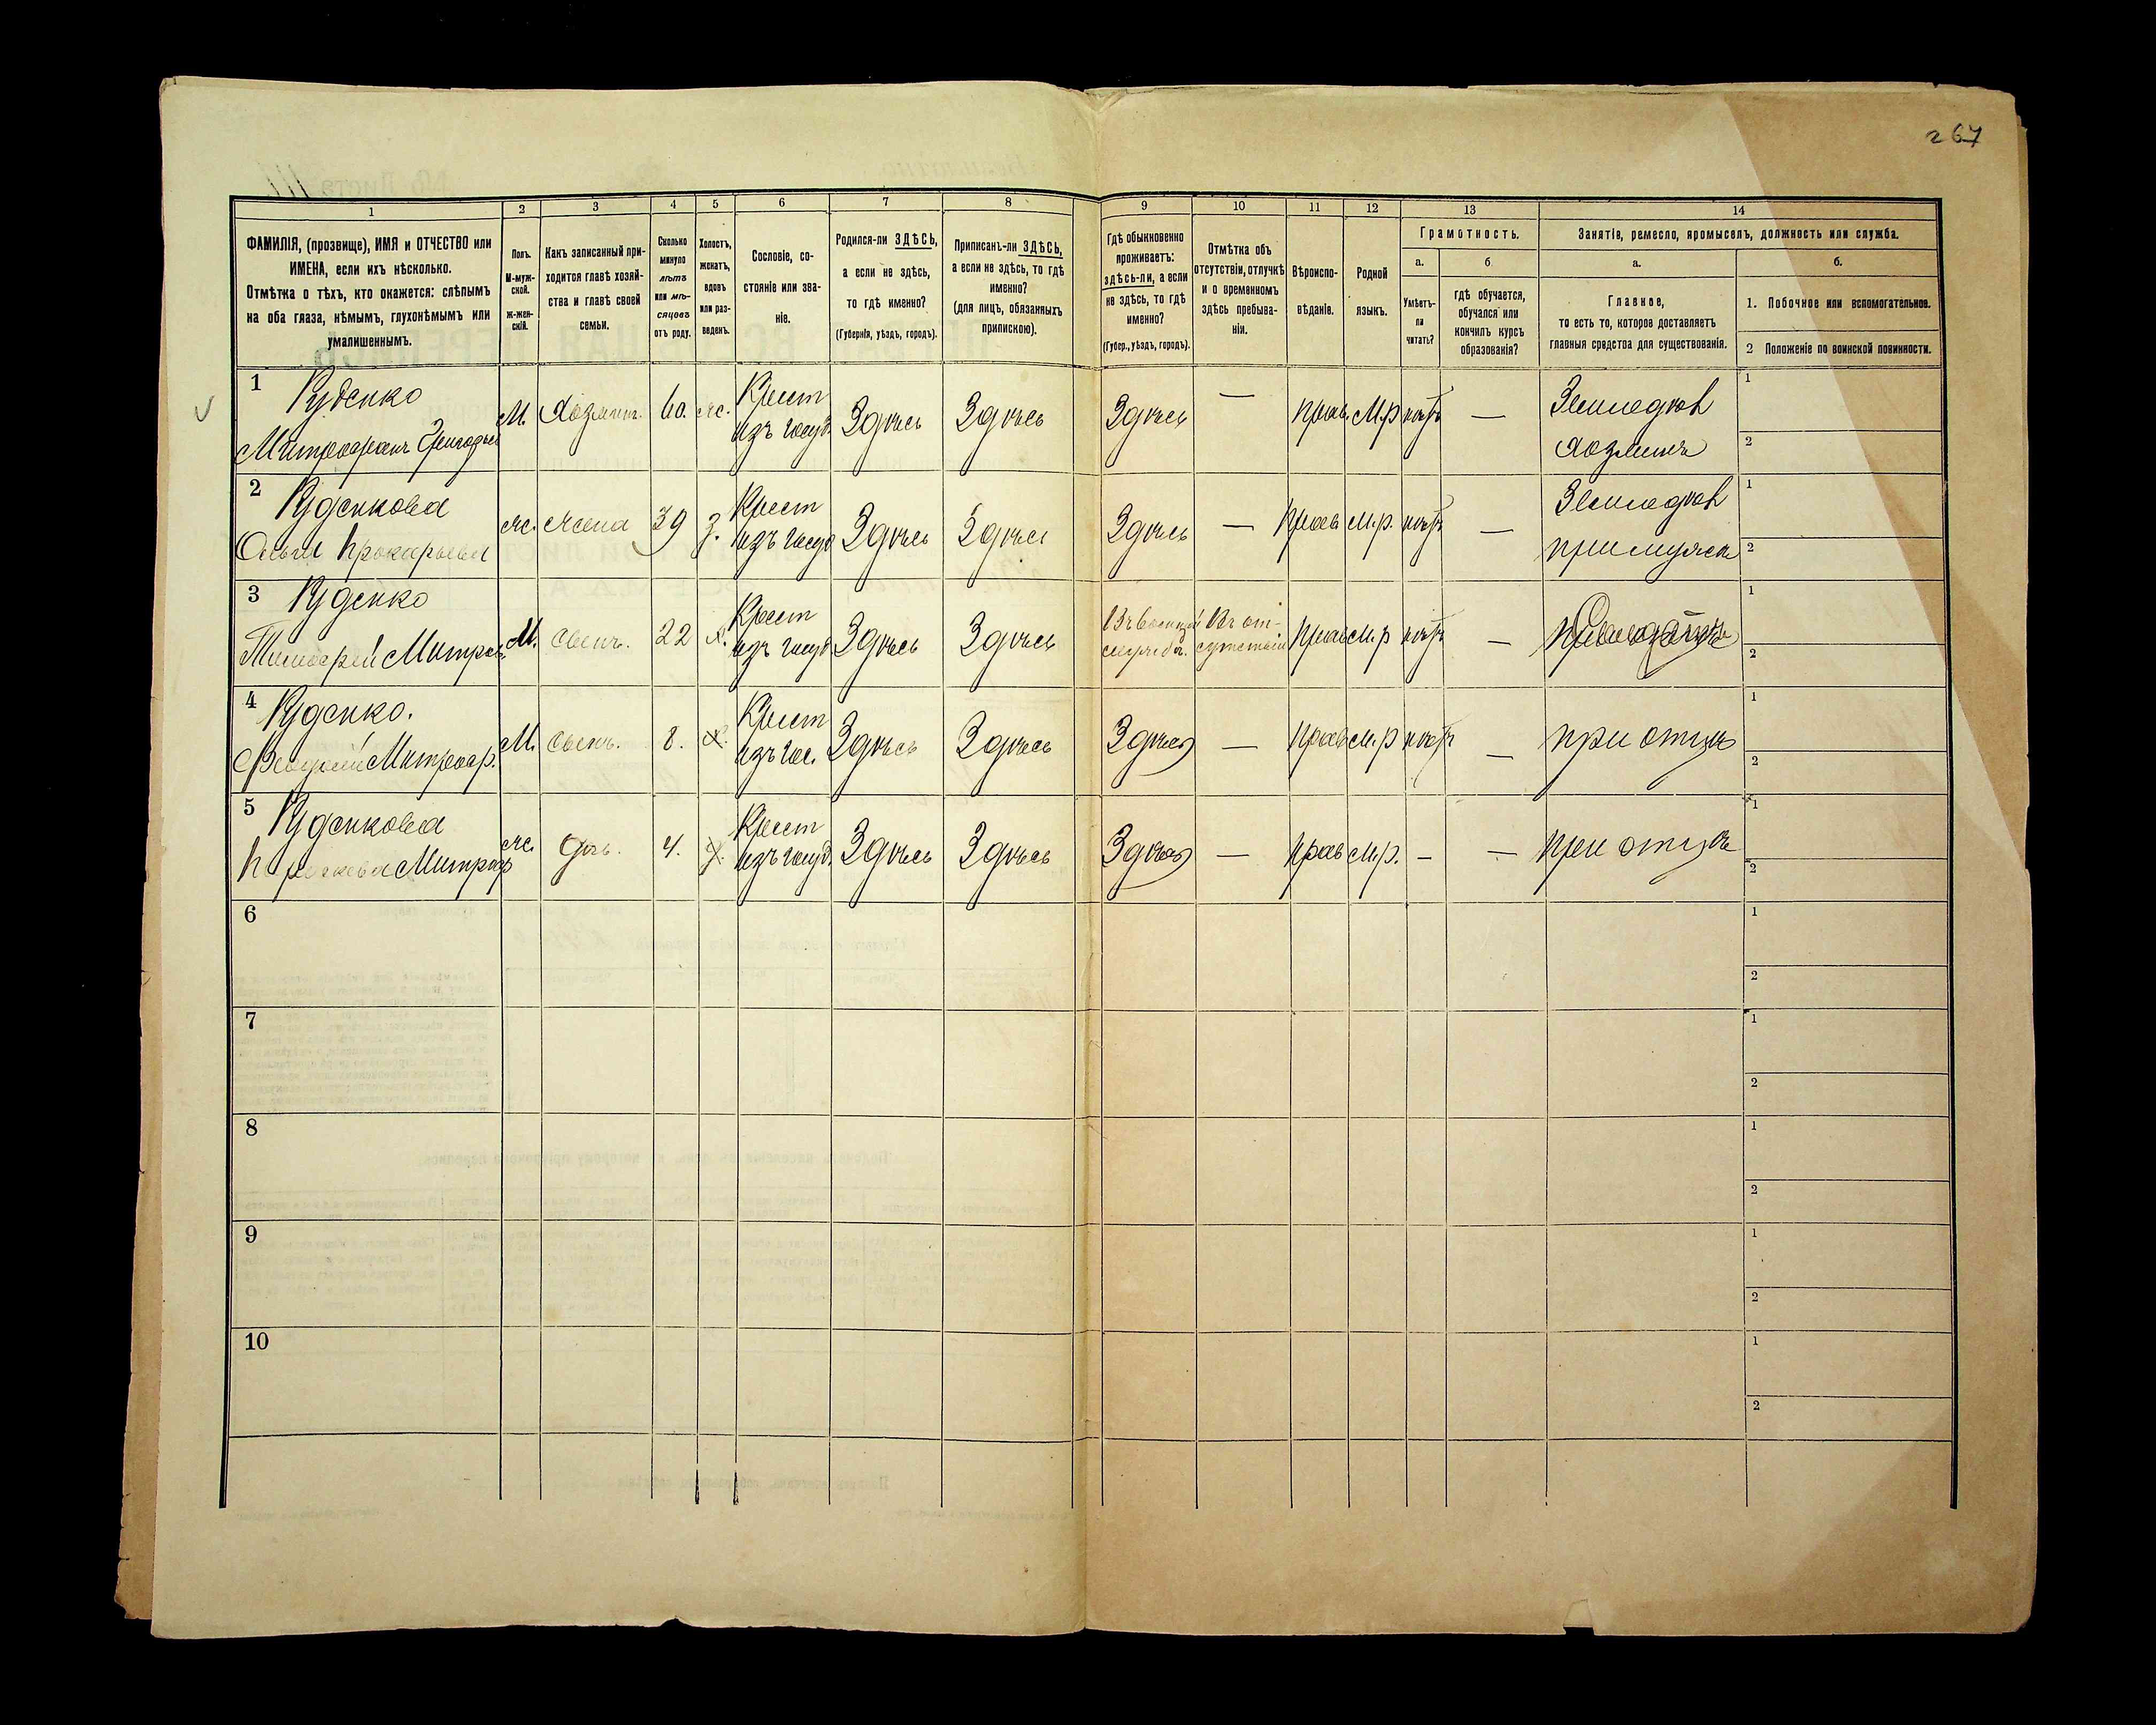 267
1 2 3 4 5 6 7 8 9 10 11 12 13 14
ФАМИЛІЯ, (прозвище), ИМЯ и ОТЧЕСТВО или
ИМЕНА, если ихъ нѣсколько.
Отмѣтка о тѣхъ, кто окажется: слѣпымъ
на оба глаза, нѣмымъ, глухонѣмымъ или
умалишеннымъ.
Полъ.
М-муж-
ской.
Ж-жен-
скій.
Какъ записанный при-
ходится главѣ хозяй-
ства и главѣ своей
семьи.
Сколько
минуло
лѣтъ
или мѣ-
сяцевъ
отъ роду.
Холостъ,
женатъ,
вдовъ
или раз-
веденъ.
Сословіе, со-
стояніе или зва-
ніе.
Родился-ли ЗДѢСЬ,
а если не здѣсь,
то гдѣ именно?
(Губернія, уѣздъ, городъ).
Приписанъ-ли ЗДѢСЬ,
а если не здѣсь, то гдѣ
именно?
(для лицъ, обязанныхъ
припискою).
Гдѣ обыкновенно
проживаетъ:
здѣсь-ли, а если
не здѣсь, то гдѣ
именно?
(Губер., уѣздъ, городъ).
Отмѣтка объ
отсутствіи, отлучкѣ
и о временномъ
здѣсь пребыва-
ніи.
Вѣроиспо-
вѣданіе.
Родной
языкъ.
Грамотность.
а.
Умѣетъ-
ли
читать?
б
гдѣ обучается,
обучался или
кончилъ курсъ
образованія?
Занятіе, ремесло, промыселъ, должность или служба.
а.
Главное,
то есть то, которое доставляетъ
главныя средства для существованія.
б.
1. Побочное или вспомогательное.
2 Положеніе по воинской повинности.
1 Руденко
Митрофанъ Григорьев
М. Хозяинъ. 60. ж. Крест
изъ госуд. Здѣсь Здѣсь Здѣсь — прав. М.р нѣтъ — Земледѣл
хозяинъ
1
2
2 Руденкова
Ольга Прокофьева
ж. жена 39 з. Крест
изъ госуд Здѣсь Здѣсь Здѣсь — прав м.р. нѣтъ — Земледѣл
при мужѣ
1
2
3 Руденко
Тимофей Митроф.
М. сынъ. 22 х. Крест
изъ госуд Здѣсь Здѣсь Въ военной
службѣ. Въ от-
сутствіи прав м.р нѣтъ —
1
2
4 Руденко.
Митроф.
М. сынъ. 8. х. Крест
изъ гос. Здѣсь Здѣсь Здѣсь — прав м.р нѣтъ — при отцѣ
1
2
5 Руденкова
Параскева Митроф
ж. дочь. 4. Крест
изъ госуд. Здѣсь Здѣсь Здѣсь — прав м.р. — — при отцѣ
1
2
6
1
2
7
1
2
8
1
2
9
1
2
10
1
2